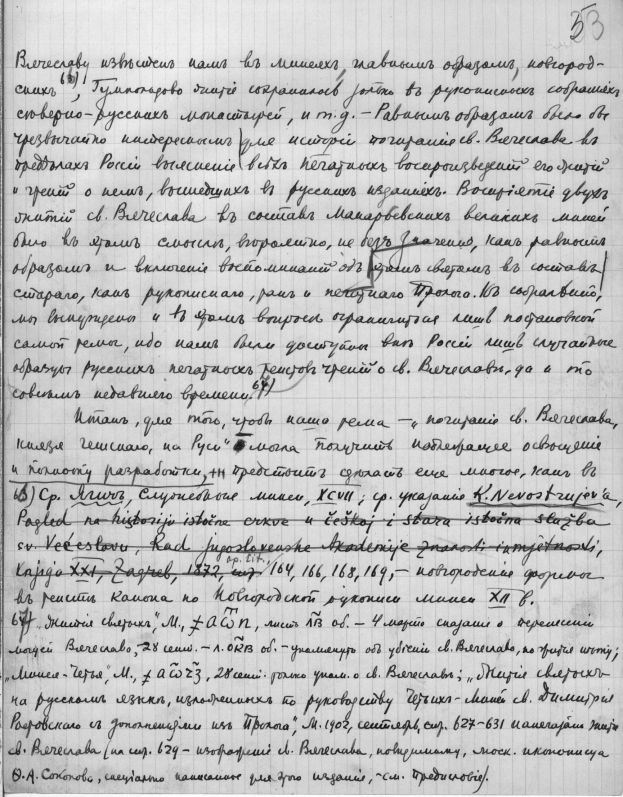 53
Вячеславу извѣстен намъ въ минеяхъ, главнымъ образомъ, новгород-
скихъ 63), Гумпольдово житіе сохранилось только въ рукописныхъ собраніяхъ
сѣверно-русскихъ монастырей, и т.д. – Равнымъ образомъ было бы
чрезвычайно интереснымъ для исторіи почитанія св. Вячеслава въ
предѣлахъ Россіи выясненіе всѣхъ печатныхъ воспроизведеній его житій
и чтеній о немъ, вошедшихъ въ русскихъ изданіяхъ. Воспріятіе двухъ
житій св. Вячеслава въ составъ Макарьевскихъ великихъ миней
было въ этомъ смыслѣ, вѣроятно, не безъ значенія, какъ равнымъ
образомъ и включеніе воспоминаній объ этомъ святомъ въ составъ
стараго, какъ рукописнаго, такъ и печатнаго Пролога. Къ сожалѣнію,
мы вынуждены и въ этомъ вопросѣ ограничиться лишь постановкой
самой темы, ибо намъ были доступны внѣ Россіи лишь случайные
образцы русскихъ печатныхъ текстовъ чтеній о св. Вячеславѣ, да и то
совсѣмъ недавняго времени. 64)
Итакъ, для того, чтобы наша тема – „почитаніе св. Вячеслава,
князя чешскаго, на Руси" могла получить надлежащее освѣщеніе
и полноту разработки, предстоитъ сдѣлать еще многое, какъ въ
63) Ср. Ягичъ, Служебныя минеи, XCVII; ср. указаніе K. Nevostrujev'a,
Pogled na historiju istočne crkve u češkoj i stara istočna služba
sv. Većeslavu, Rad Jugoslavenske Akademije znanosti i umjetnosti,
knjiga XXI, Zagreb, 1872, стр. 164, 166, 168, 169, – новгородскія формы
въ текстѣ канона по Новгородской рукописи минеи XII в.
64) „Житія святыхъ", М., листъ об. – 4 марта сказаніе о перенесеніи
мощей Вячеслава, 28 сент. – л. об. – упомянуто объ убіеніи св. Вячеслава, но житія нѣту;
„Минея-Четья", М., 28 сент. только упом. о св. Вячеславѣ; „Житія святыхъ
на русскомъ языкѣ, изложенныхъ по руководству Четьихъ-Миней св. Димитрія
Ростовскаго съ дополненіями изъ Пролога", М. 1902, сентябрь, стр. 627–631 напечатано житіе
св. Вячеслава (на стр. 629 – изображеніе св. Вячеслава, повидимому, моск. иконописца
Ѳ.А. Соколова, спеціально написанное для этого изданія, – см. предисловіе).